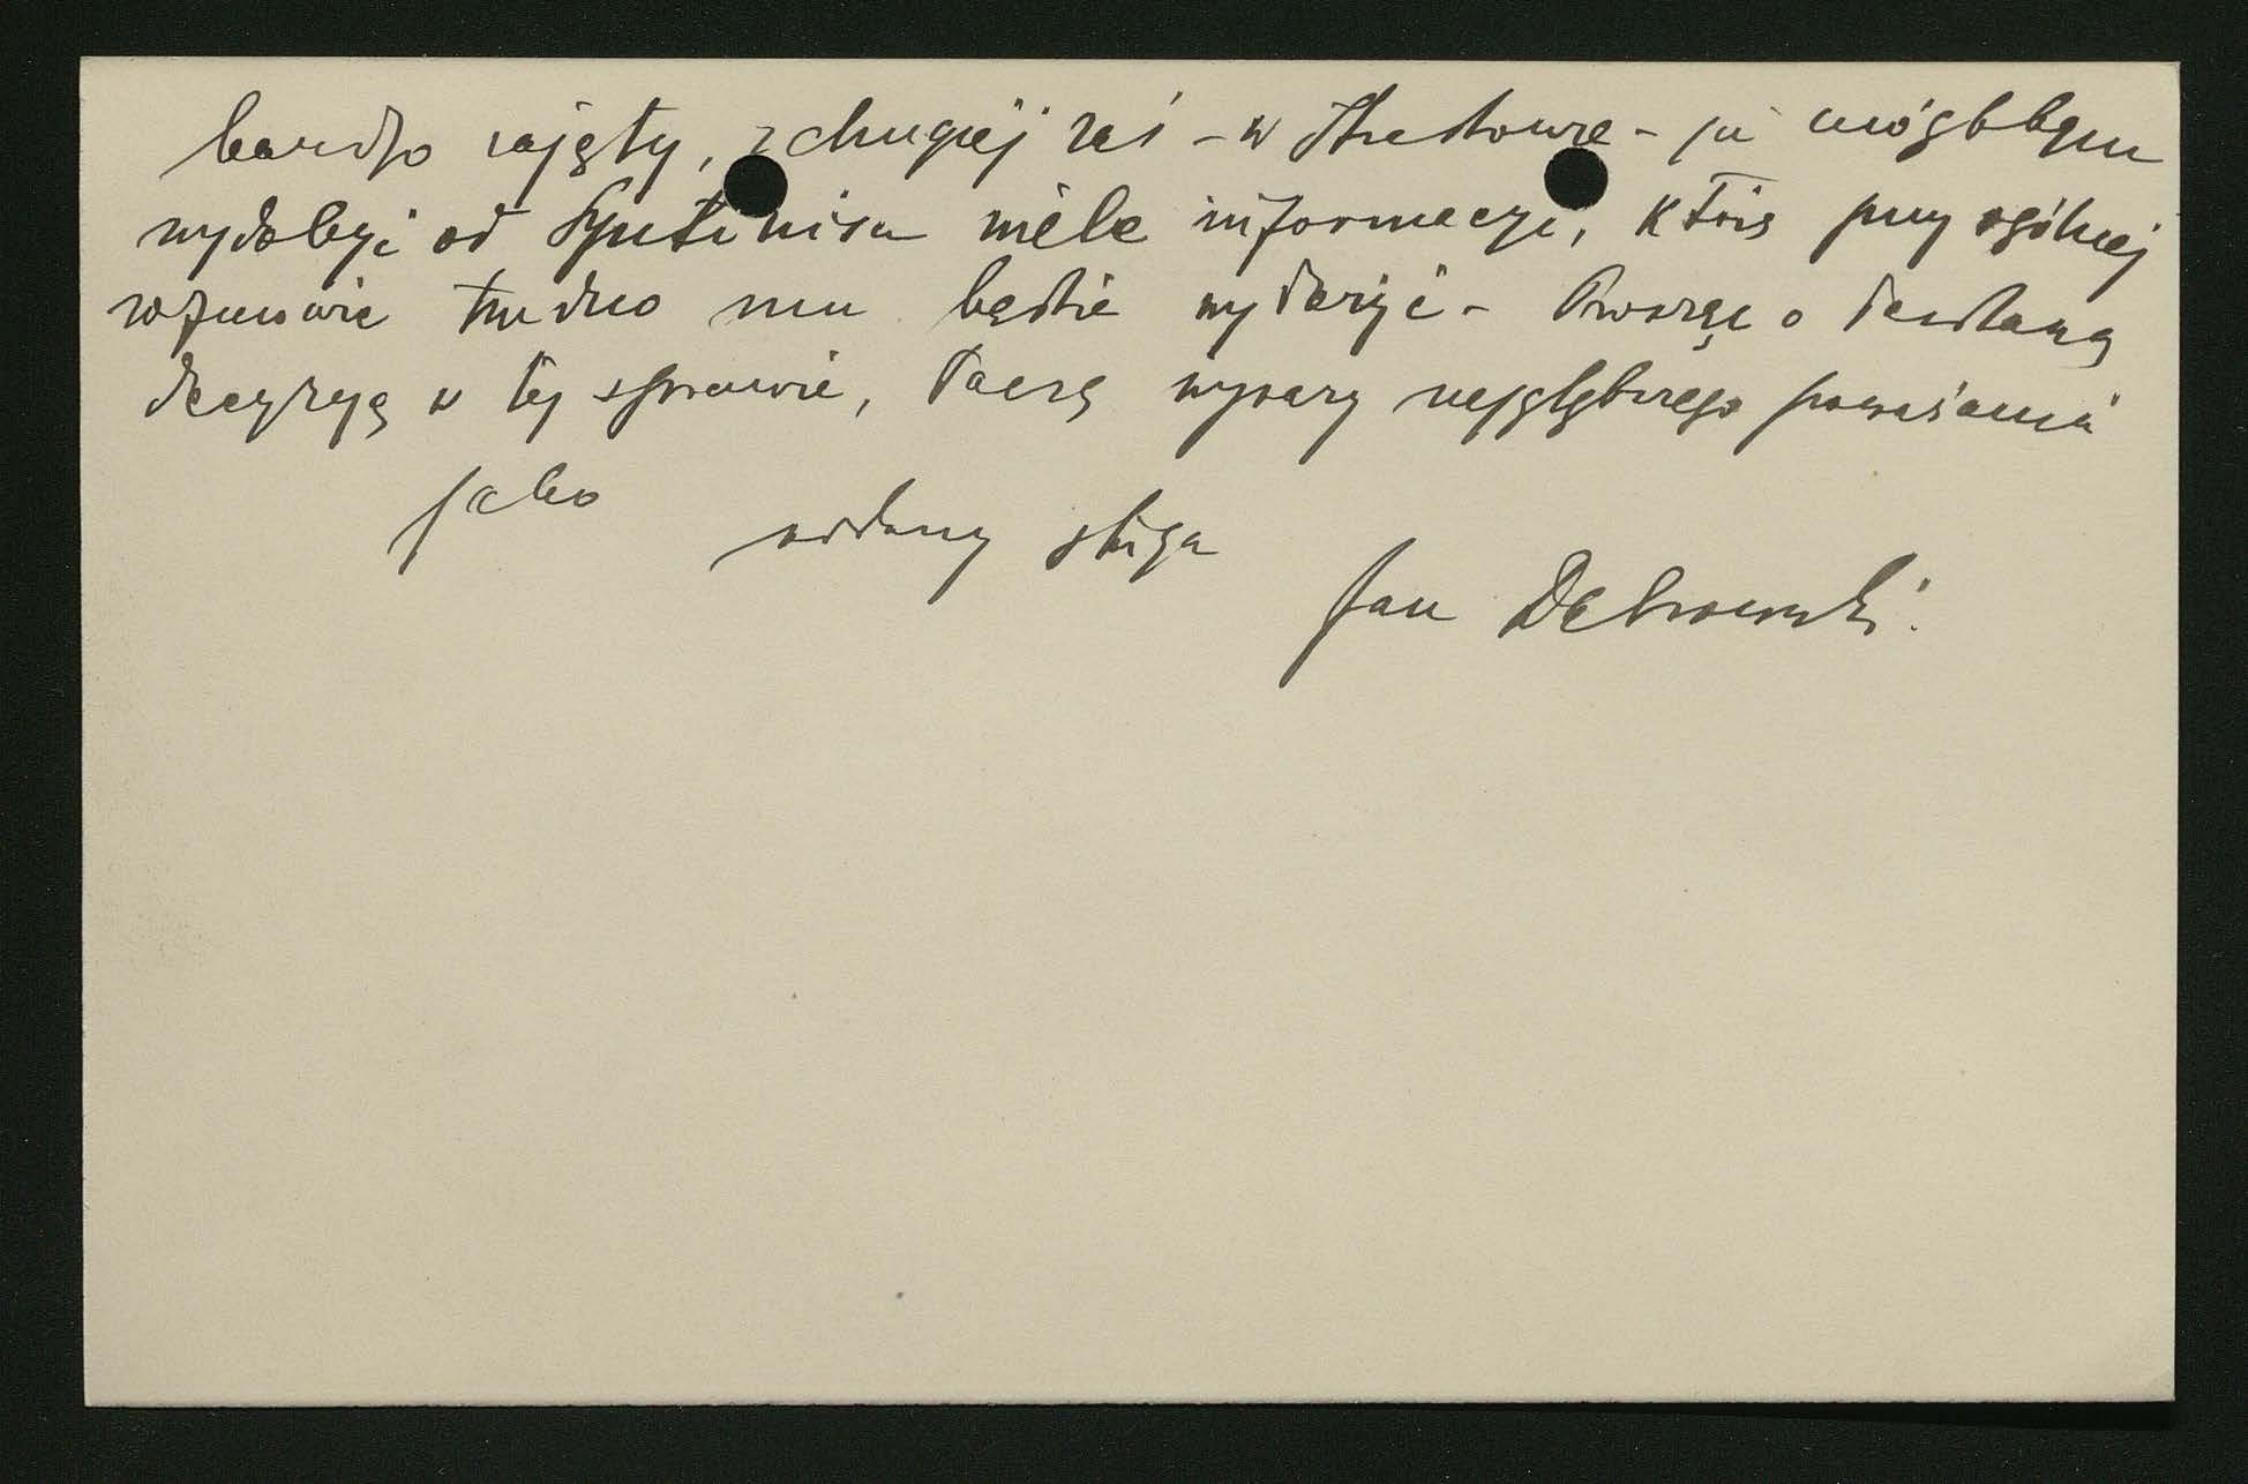 bardzo zajęty, z drugiej zaś – w Krakowie – ja mógłbym
wydobyć od wiele informacyi, które przy ogólnej
rozmowie trudno mu będzie wydobyć – Prosząc o łaskawą
decyzyę w tej sprawie, łączę wyrazy najgłębszego poważania
jako
oddany sługa
Jan Dąbrowski.